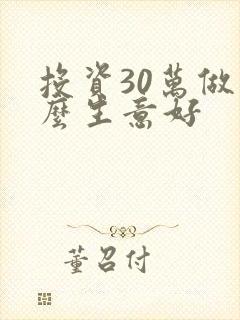 投資30萬做
麼生意好
董召付